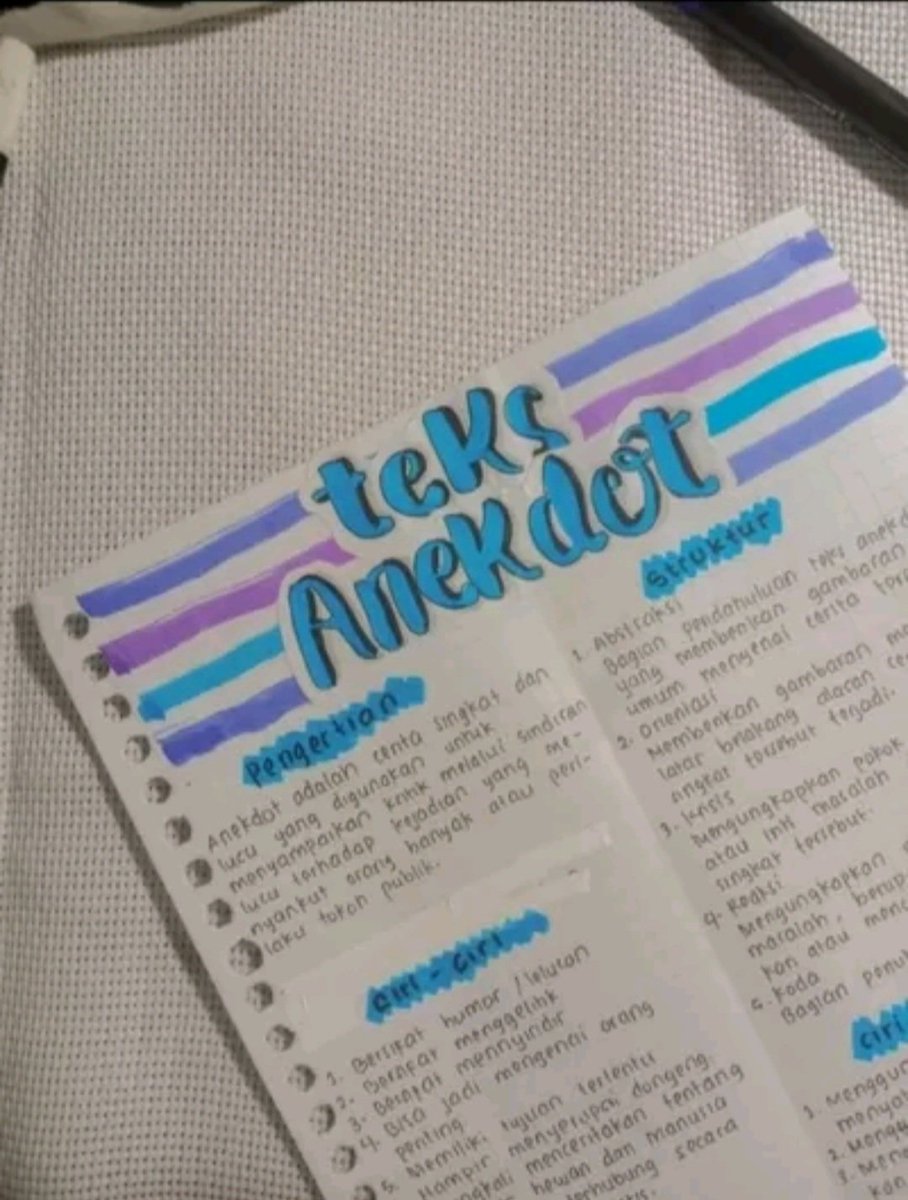 teks
Anekdot
Pengertian
Anekdot adalah cerita singkat dan
lucu yang digunakan untuk
menyampaikan kritik melalui sindiran
lucu terhadap kejadian yang me-
nyangkut orang banyak atau peri-
laku tokoh publik.
Ciri - Ciri
1. Bersifat humor / lelucon
2. Bersifat menggelitik
3. Bersifat menyindir
4. Bisa jadi mengenai orang
penting
5. Memiliki tujuan tertentu
Hampir menyerupai dongeng
menceritakan tentang
hewan dan manusia
terhubung secara
Struktur
1. Abstraksi
Bagian pendahuluan teks
yang memberikan gambaran
umum mengenai cerita
2. Orientasi
Memberikan gambaran
latar belakang
singkat tersebut terjadi.
3. Krisis
Mengungkapkan pokok
atau inti masalah
singkat tersebut.
4. Reaksi
Mengungkapkan
masalah, berup
kan atau
5. Koda
Bagian
Ciri
1.
2.
3.